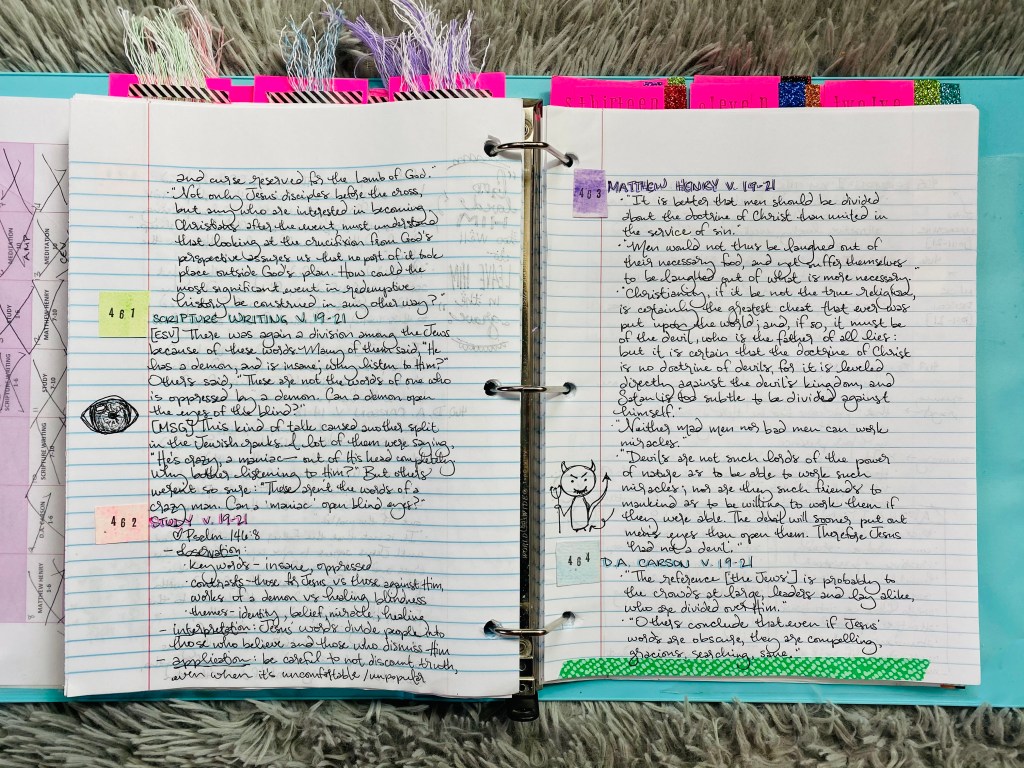 and curse reserved for the Lamb of God."
· "Not only Jesus' disciples before the cross,
but any who are interested in becoming
Christians after the event, must understand
that looking at the crucifixion from God's
perspective assures us that no part of it took
place outside God's plan. How could the
most significant event in redemptive
history be construed in any other way?"
461
SCRIPTURE WRITING V. 19-21
[ESV] There was again a division among the Jews
because of these words. Many of them said, "He
has a demon, and is insane; why listen to Him?"
Others said, "These are not the words of one who
is oppressed by a demon. Can a demon open
the eyes of the blind?"
[MSG] This kind of talk caused another split
in the Jewish ranks. A lot of them were saying,
"He's crazy, a maniac — out of His head completely.
Why bother listening to Him?" But others
weren't so sure: "These aren't the words of a
crazy man. Can a 'maniac' open blind eyes?"
462
STUDY V. 19-21
♡ Psalm 146:8
- observation:
· key words - insane, oppressed
· contrasts - those for Jesus vs those against Him,
works of a demon vs healing blindness
· themes - identity, belief, miracle, healing
- interpretation: Jesus' words divide people into
those who believe and those who dismiss Him
- application: be careful to not discount truth,
even when it's uncomfortable/unpopular
thirteen
eleven
twelve
463
MATTHEW HENRY V. 19-21
· "It is better that men should be divided
about the doctrine of Christ than united in
the service of sin."
· "Men would not thus be laughed out of
their necessary food, and yet suffer themselves
to be laughed out of what is more necessary."
· "Christianity, if it be not the true religion,
is certainly the greatest cheat that ever was
put upon the world; and, if so, it must be
of the devil, who is the father of all lies:
but it is certain that the doctrine of Christ
is no doctrine of devils, for it is leveled
directly against the devil's kingdom, and
Satan is too subtle to be divided against
himself."
· "Neither mad men nor bad men can work
miracles."
· "Devils are not such lords of the power
of nature as to be able to work such
miracles; nor are they such friends to
mankind as to be willing to work them if
they were able. The devil will sooner put out
men's eyes than open them. Therefore Jesus
had not a devil."
464
D.A. CARSON V. 19-21
· "The reference ['the Jews'] is probably to
the crowds at large, leaders and lay alike,
who are divided over Him."
· "Others conclude that even if Jesus'
words are obscure, they are compelling,
gracious, searching, sane."
MEDITATION
AMP
MEDITATION
STUDY
MATTHEW HENRY
1-6
SCRIPTURE WRITING
1-6
STUDY
7-10
SCRIPTURE WRITING
7-10
D.A. CARSON
1-6
MATTHEW HENRY
1-6